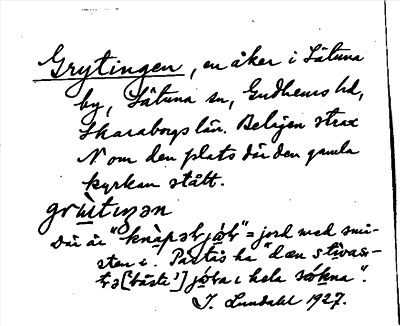 Grytingen, en åker i Låtuna
by, Låtuna sn, Gudhems hd,
Skaraborgs län. Belägen strax
N om den plats där den gamla
kyrkan stått.
grùtiŋən
Där är "knàpəʈjọʈ" = jord med
sten i. Påstås ha "dæn
[bästa] jọʈa i hela sọkna".
J. Lundahl 1927.